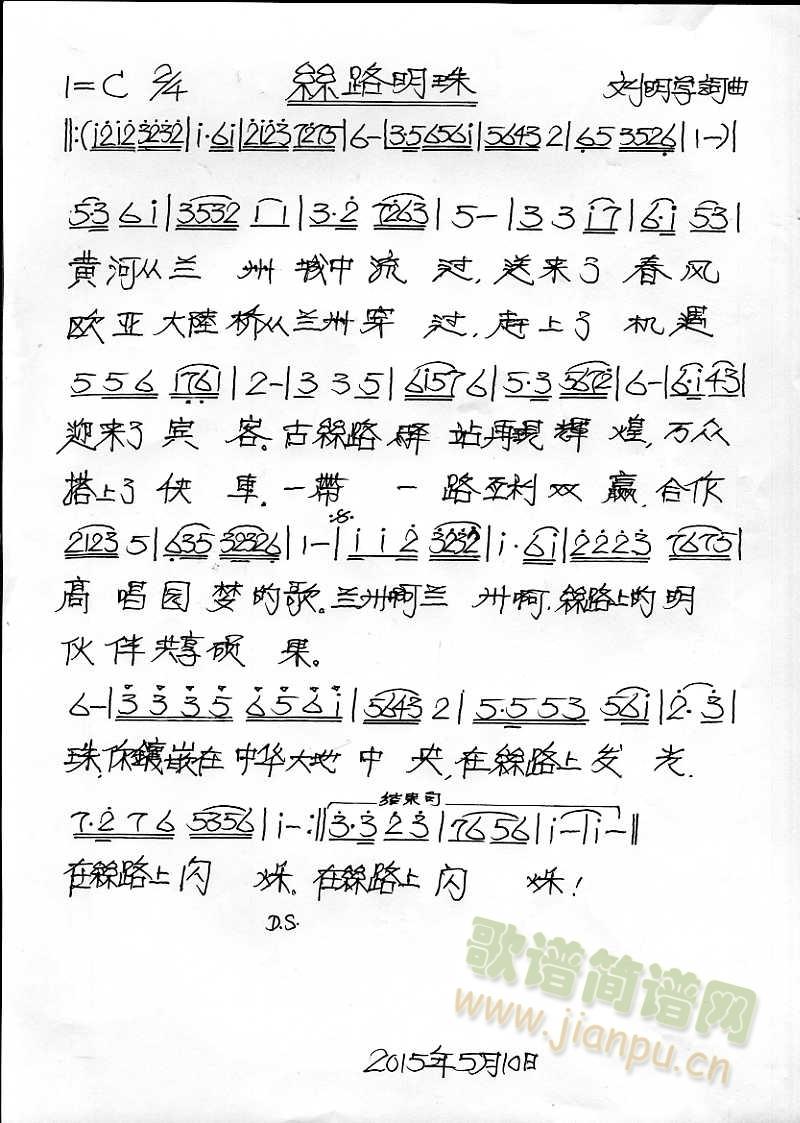 1=C 2/4 絲路明珠 刘明学詞曲
‖:(i2i2 3232|i·6i|2i23 7275|6-|3·5 656i|5643 2|6·5 3526|1-)|
53 6i|3532 11|3·2 7263|5-|3 3 i7|6·i 53|
黄河从兰 州 城中流 过,送来了 春风
欧亚大陸桥从兰州穿 过,赶上了 机遇
5 5 6 1761|2-|3 3 5|6i57 6|5·3 5672|6-|6·i 43|
迎来了宾 客。古絲路驛 站再現輝 煌,万众
搭上了快 車。一帶 一 路互利双 赢,合作
2123 5|635 32326|1-|i i 2 3232|i·6i|2 2 2 3 7675|
高 唱园 梦的歌。兰州啊兰 州啊,絲路上的明
伙伴共享硕 果。
6-|3 3 3 5 6 5 6 i|5643 2|5·5 5 3 56i|2·3|
珠,你鑲嵌在中华大地中 央,在絲路上发 光.
7·2 7 6 5356|i-:‖3·3 2 3|76 56|i-|i-‖
结束句
在絲路上闪 烁。在絲路上闪 烁!
D.S.
歌谱简谱网
www.jianpu.cn
2015年5月10日